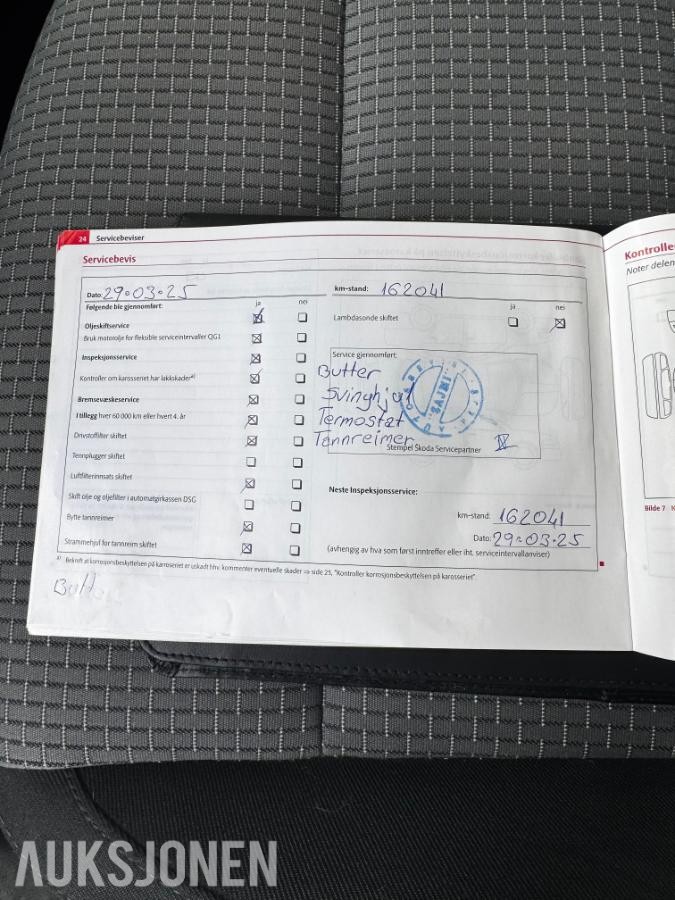 24 Servicebeviser
Servicebevis
Dato: 29.03.25
km-stand: 162041
Følgende ble gjennomført:
ja nei
ja nei
Oljeskiftservice
Lambdasonde skiftet
Bruk motorolje for fleksible serviceintervaller QG1
Inspeksjonsservice
Kontroller om karosseriet har lakkskader a)
Bremsevæskeservice
I tillegg hver 60 000 km eller hvert 4. år
Drivstoffilter skiftet
Tennplugger skiftet
Luftfilterinnsats skiftet
Skift olje og oljefilter i automatgirkassen DSG
Bytte tannreimer
Strammehjul for tannreim skiftet
Service gjennomført:
Butter
Svinghjul
Termostat
Tannreimer
Stempel Skoda Servicepartner
Neste Inspeksjonsservice:
km-stand: 162041
Dato: 29.03.25
(avhengig av hva som først inntreffer eller iht. serviceintervallanviser)
a) Bekreft at korrosjonsbeskyttelsen på karosseriet er uskadt hhv. kommenter eventuelle skader ⇒ side 25, "Kontroller korrosjonsbeskyttelsen på karosseriet".
Kontroller
Noter delen
Bilde 7
AUKSJONEN